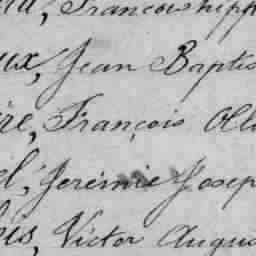 François hipp
ux, Jean Baptis
re, François Oli
el, Jerémie Josep
is, Victor Augus